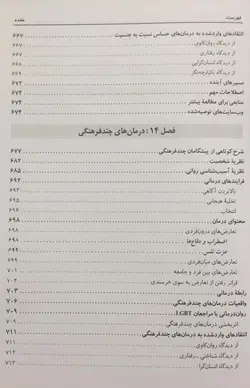 فهرست هفده
انتقادهای وارد شده به درمان‌های حساس نسبت به جنسیت ۶۶۷
از دیدگاه روان‌کاوی ۶۶۷
از دیدگاه رفتاری ۶۶۷
از دیدگاه انسان‌گرایی ۶۶۸
از دیدگاه یکپارچه‌نگر
مسیرهای آینده ۶۷۳
اصطلاحات مهم ۶۷۴
منابعی برای مطالعهٔ بیشتر ۶۷۴
وب‌سایت‌های توصیه‌شده ۶۷۴
فصل ۱۴: درمان‌های چندفرهنگی
شرح کوتاهی از پیشگامان چندفرهنگی ۶۷۷
نظریهٔ شخصیت ۶۸۲
نظریهٔ آسیب‌شناسی روانی ۶۸۵
فرایندهای درمانی ۶۹۲
بالا بردن آگاهی ۶۹۳
تخلیهٔ هیجانی
انتخاب
محتوای درمان ۶۹۸
تعارض‌های درون‌فردی ۶۹۸
اضطراب و دفاع‌ها ۶۹۸
عزت نفس ۶۹۸
تعارض‌های میان‌فردی ۶۹۹
تعارض‌های بین فرد و جامعه ۷۰۱
فراتر رفتن از تعارض به سوی خرسندی
رابطهٔ درمانی ۷۰۳
واقعیات درمان‌های چندفرهنگی ۷۰۶
روان‌درمانی با مراجعان LGBT ۷۰۹
اثربخشی درمان‌های چندفرهنگی
انتقادهای وارد شده به درمان‌های چندفرهنگی ۷۱۱
از دیدگاه روان‌کاوی
از دیدگاه شناختی ـ رفتاری ۷۱۲
از دیدگاه انسان‌گرا ۷۱۳